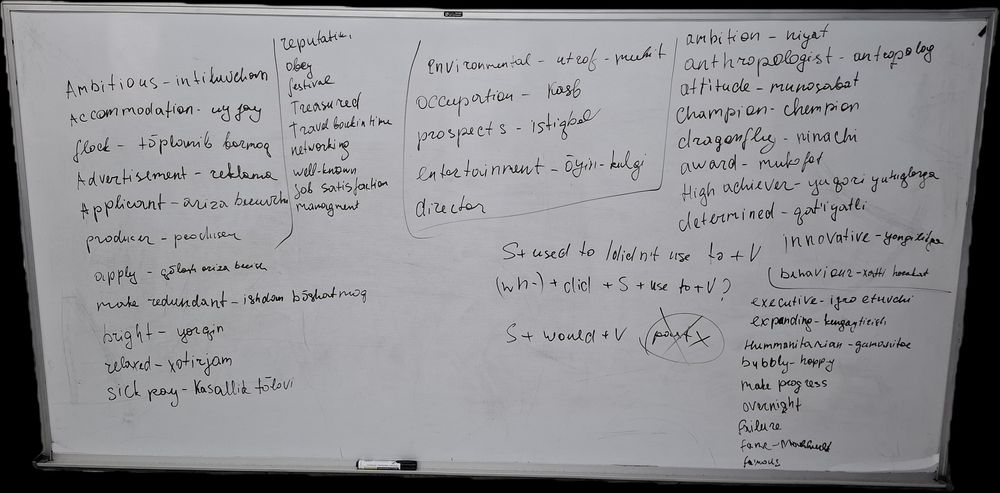 Ambitious - intiluvchan
Accommodation - uy joy
flock - tōplanib bormoq
Advertisement - reklama
Applicant - ariza beruvchi
producer - produser
apply - ariza berish
make redundant - ishdan bōshatmoq
bright - yorqin
relaxed - xotirjam
Sick pay - Kasallik tōlovi
reputation
obey
festival
Treasured
Travel back in time
networking
well-known
job satisfaction
managment
Environmental - atrof - muhit
Occupation - Kasb
prospects - istiqbol
entertainment - ōyin-kulgi
director
S + used to / didn't use to + V
(wh-) + did + S + use to + V?
S + would + V
ambition - niyat
anthropologist - antropolog
attitude - munosabat
Champion - chempion
dragonfly - ninachi
award - mukofot
High achiever - yuqori yutuqlarga
determined - qat'iyatli
innovative -
behaviour - xatti harakat
executive - ijro etuvchi
expanding - kengaytirish
Hummanitarian -
bubbly - happy
make progress
overnight
failure
fame -
famous